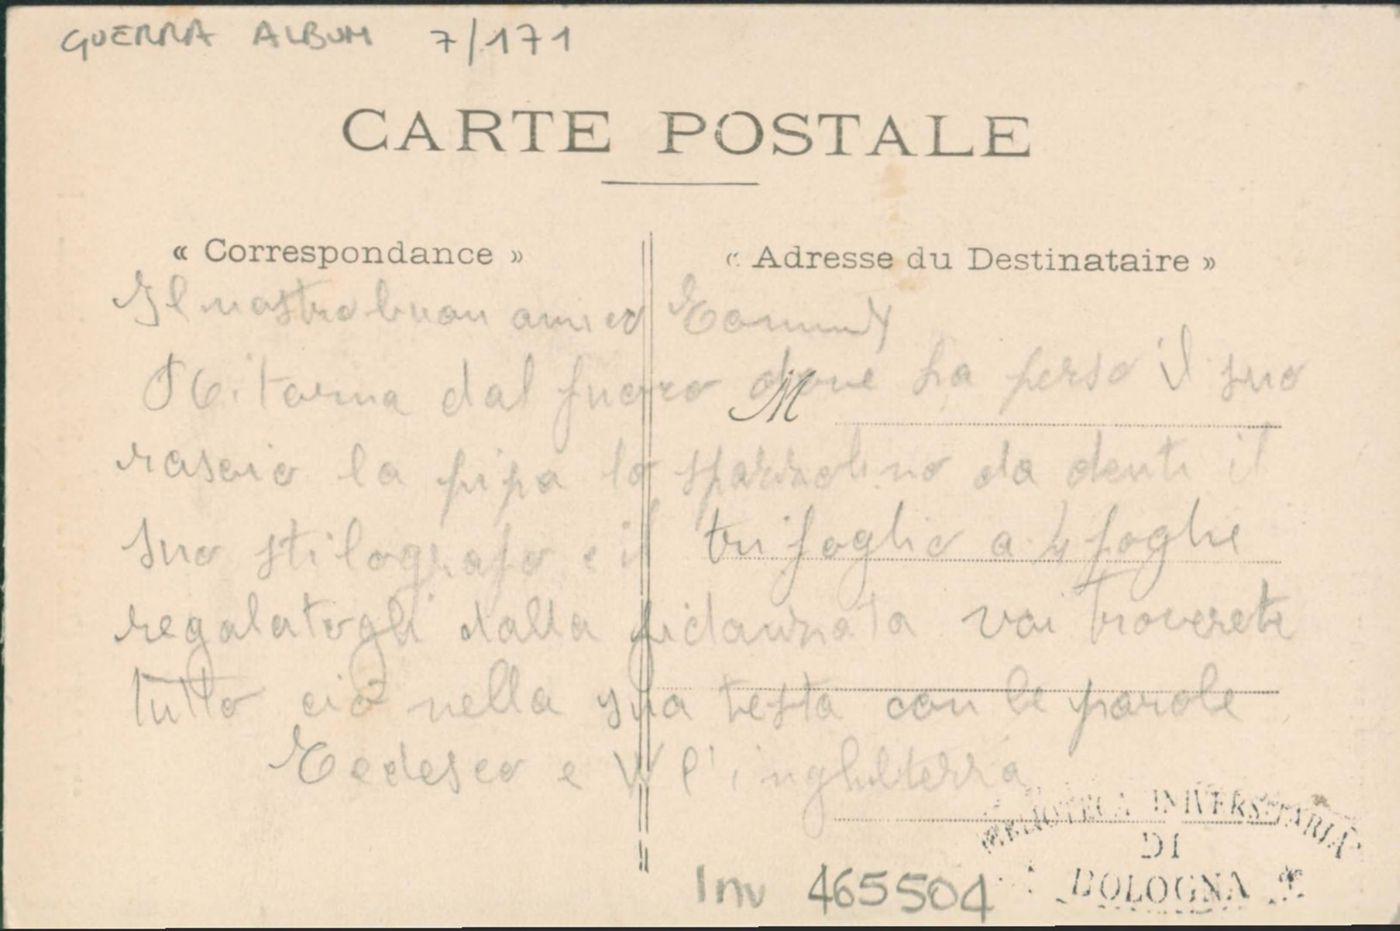 GUERRA ALBUM 7/171
CARTE POSTALE
« Correspondance »
« Adresse du Destinataire »
Il nostro buon amico
Ritorna dal fuoro dove ha perso il suo
M
rasoio la pipa lo spazzolino da denti il
suo stilografo e il trifoglio a 4 foglie
regalatogli dalla fidanzata voi troverete
tutto ciò nella sua testa con le parole
Tedesco e W l'inghilterra
BIBLIOTECA UNIVERSITARIA
DI
BOLOGNA
Inv 465504